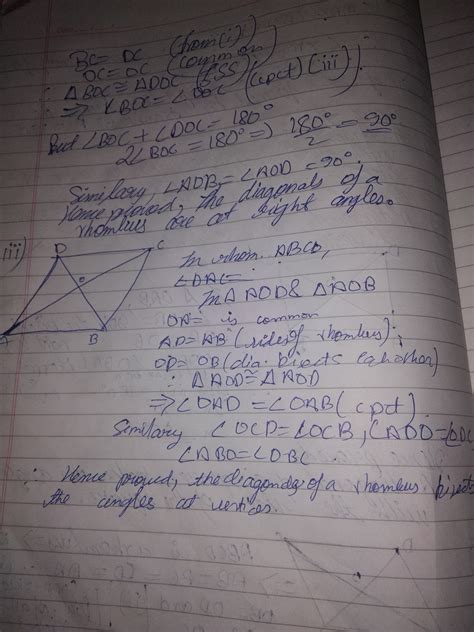 BC = DC (from (i))
OC = OC (common)
∆ BOC ≅ ∆DOC (SSS)
⇒ ∠BOC = ∠DOC (cpct) (iii)
But ∠BOC + ∠DOC = 180°
2∠BOC = 180° ⇒ 180°/2 = 90°
Similary, ∠AOB = ∠AOD = 90°
Hence proved, the diagonals of a
rhombus are at right angles.
iii)
D C
O
A B
In rhom. ABCD,
∠DAC =
In ∆ AOD & ∆AOB
OA = is common
AD = AB (sides of rhombus)
OD = OB (dia. bisects eachother)
∴ ∆AOD ≅ ∆AOD
⇒ ∠OAD = ∠OAB (cpct)
Similary ∠OCD = ∠OCB, ∠ADO = ∠ODC
∠ABO = ∠OBC
∴ Hence proved, the diagonals of a rhombus bisects
the angles at vertices.